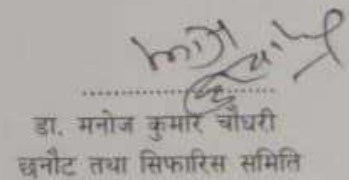 डा. मनोज कुमार चौधरी
छनौट तथा सिफारिस समिति